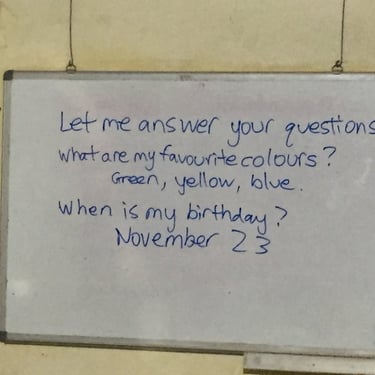 Let me answer your questions
What are my favourite colours?
Green, yellow, blue.
When is my birthday?
November 23